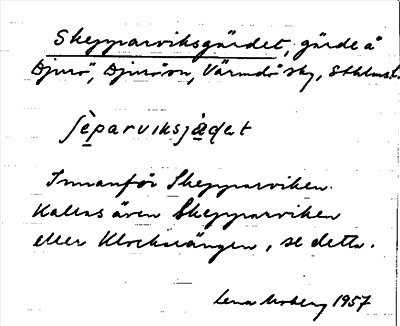 Skepparviksgärdet, gärde å
Djurö, Djuröson, Värmdö sky, Sthlms l.
ʃèparviksjä̀ḍet
Innanför Skepparviken.
Kallas även Skepparviken
eller Klockarängen, se detta.
Lena Moberg 1957